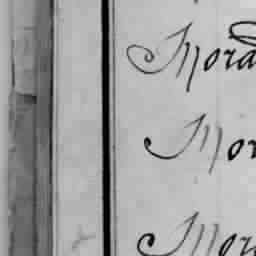 Mora
Mor
Mor